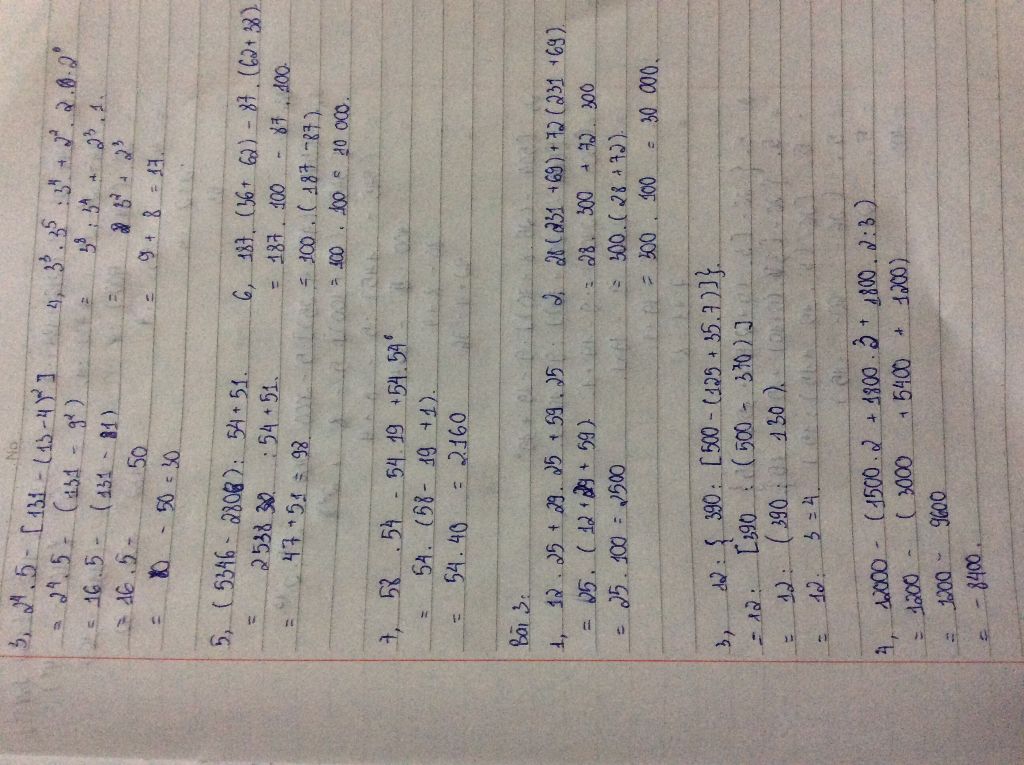 No
3, 2⁴ . 5 - [131 - (13-4)²]
= 2⁴ . 5 - (131 - 9²)
= 16 . 5 - (131 - 81)
= 16 . 5 - 50
= 80 - 50 = 30
4, 3³ . 3⁵ : 3⁴ + 2² . 2 . 2⁰
= 3⁸ : 3⁴ + 2³ . 1.
= 3² + 2³
= 9 + 8 = 17.
5, (5346 - 2808) : 54 + 51.
= 2538 : 54 + 51.
= 47 + 51 = 98
6, 187 . (36 + 62) - 87 . (62 + 38)
= 187 . 100 - 87 . 100.
= 100 . (187 - 87)
= 100 . 100 = 10 000.
7, 58 . 54 - 54 . 19 + 54 . 54⁰
= 54 . (58 - 19 + 1).
= 54 . 40 = 2160
Bài 3:
1, 12 . 25 + 29 . 25 + 59 . 25
= 25 . (12 + 29 + 59)
= 25 . 100 = 2500
2, 28 (231 + 69) + 72 (231 + 69)
= 28 . 300 + 72 . 300
= 300 . (28 + 72).
= 300 . 100 = 30 000.
3, 12 : { 390 : [500 - (125 + 35 . 7)]}.
= 12 : [390 : (500 - 370)]
= 12 : (390 : 130).
= 12 : 3 = 4.
4, 12000 - (1500 . 2 + 1800 . 3 + 1800 . 2 : 3)
= 1200 - (3000 + 5400 + 1200)
= 1200 - 9600
= - 8400.